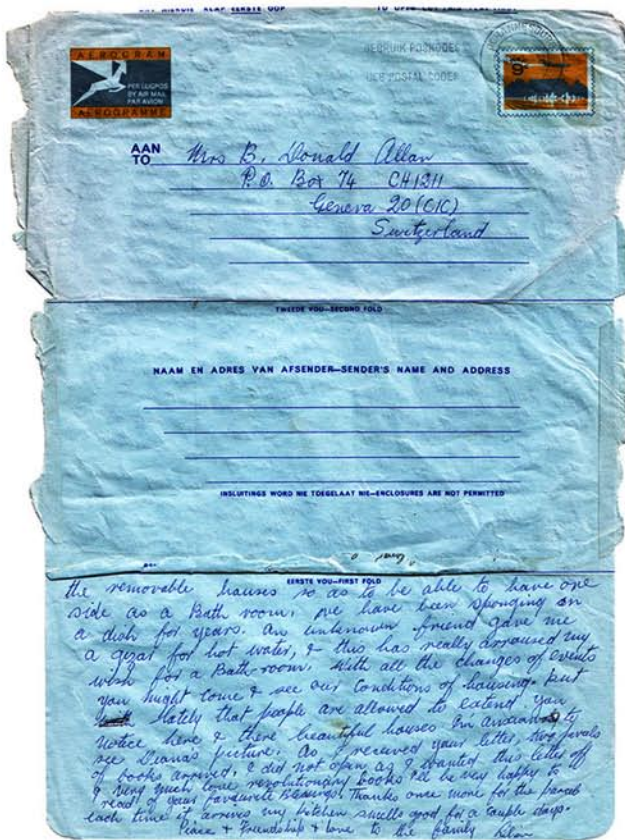 AEROGRAM
PER LUGPOS
BY AIR MAIL
PAR AVION
AEROGRAMME
GEBRUIK POSKODES
USE POSTAL CODES
AAN
TO
Mrs B. Donald Allan
P.O. Box 74 CH1211
Geneva 20 (CIC)
Switzerland
TWEEDE VOU—SECOND FOLD
NAAM EN ADRES VAN AFSENDER—SENDER'S NAME AND ADDRESS
INSLUITINGS WORD NIE TOEGELAAT NIE—ENCLOSURES ARE NOT PERMITTED
EERSTE VOU—FIRST FOLD
the removable houses so as to be able to have one
side as a Bath room. we have been sponging on
a dish for years. An unknown friend gave me
a gezar for hot water, & this has really arroused my
wish for a Bath room. With all the changes of events
you might come & see our conditions of housing. But
lately that people are allowed to extend you
notice here & there beautiful houses. Im anxious to
see Diana's picture. As I received your letter, two
of books arrived. I did not open as I wanted this letter off
I very much love revolutionary books I'll be very happy to
read of your favourite Blessings. Thanks once more for the parcels
each time it arrives my kitchen smells good for a couple days.
Peace & Friendship & love to the family